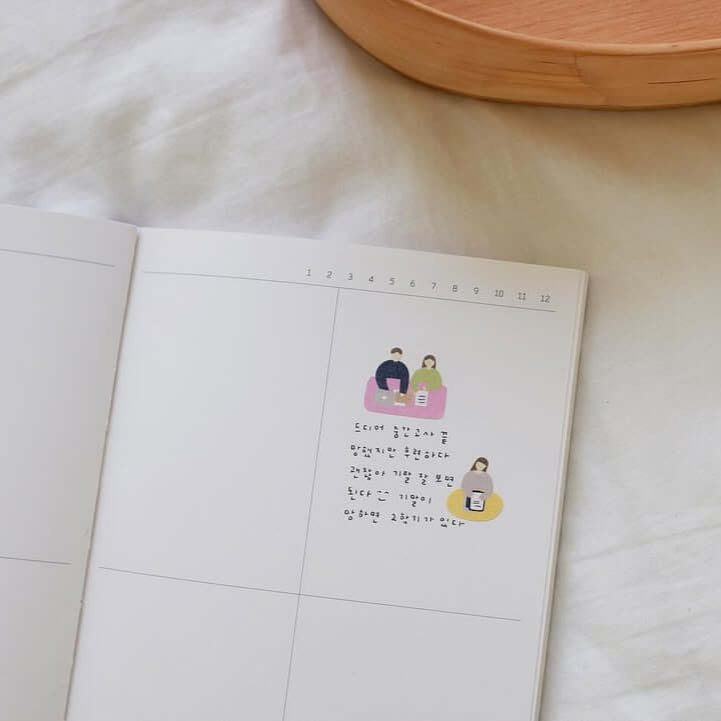 1 2 3 4 5 6 7 8 9 10 11 12
드디어 중간고사 끝
망했지만 후련하다
괜찮아 기말 잘 보면
된다 ^^ 기말이
망하면 2학기가 있다